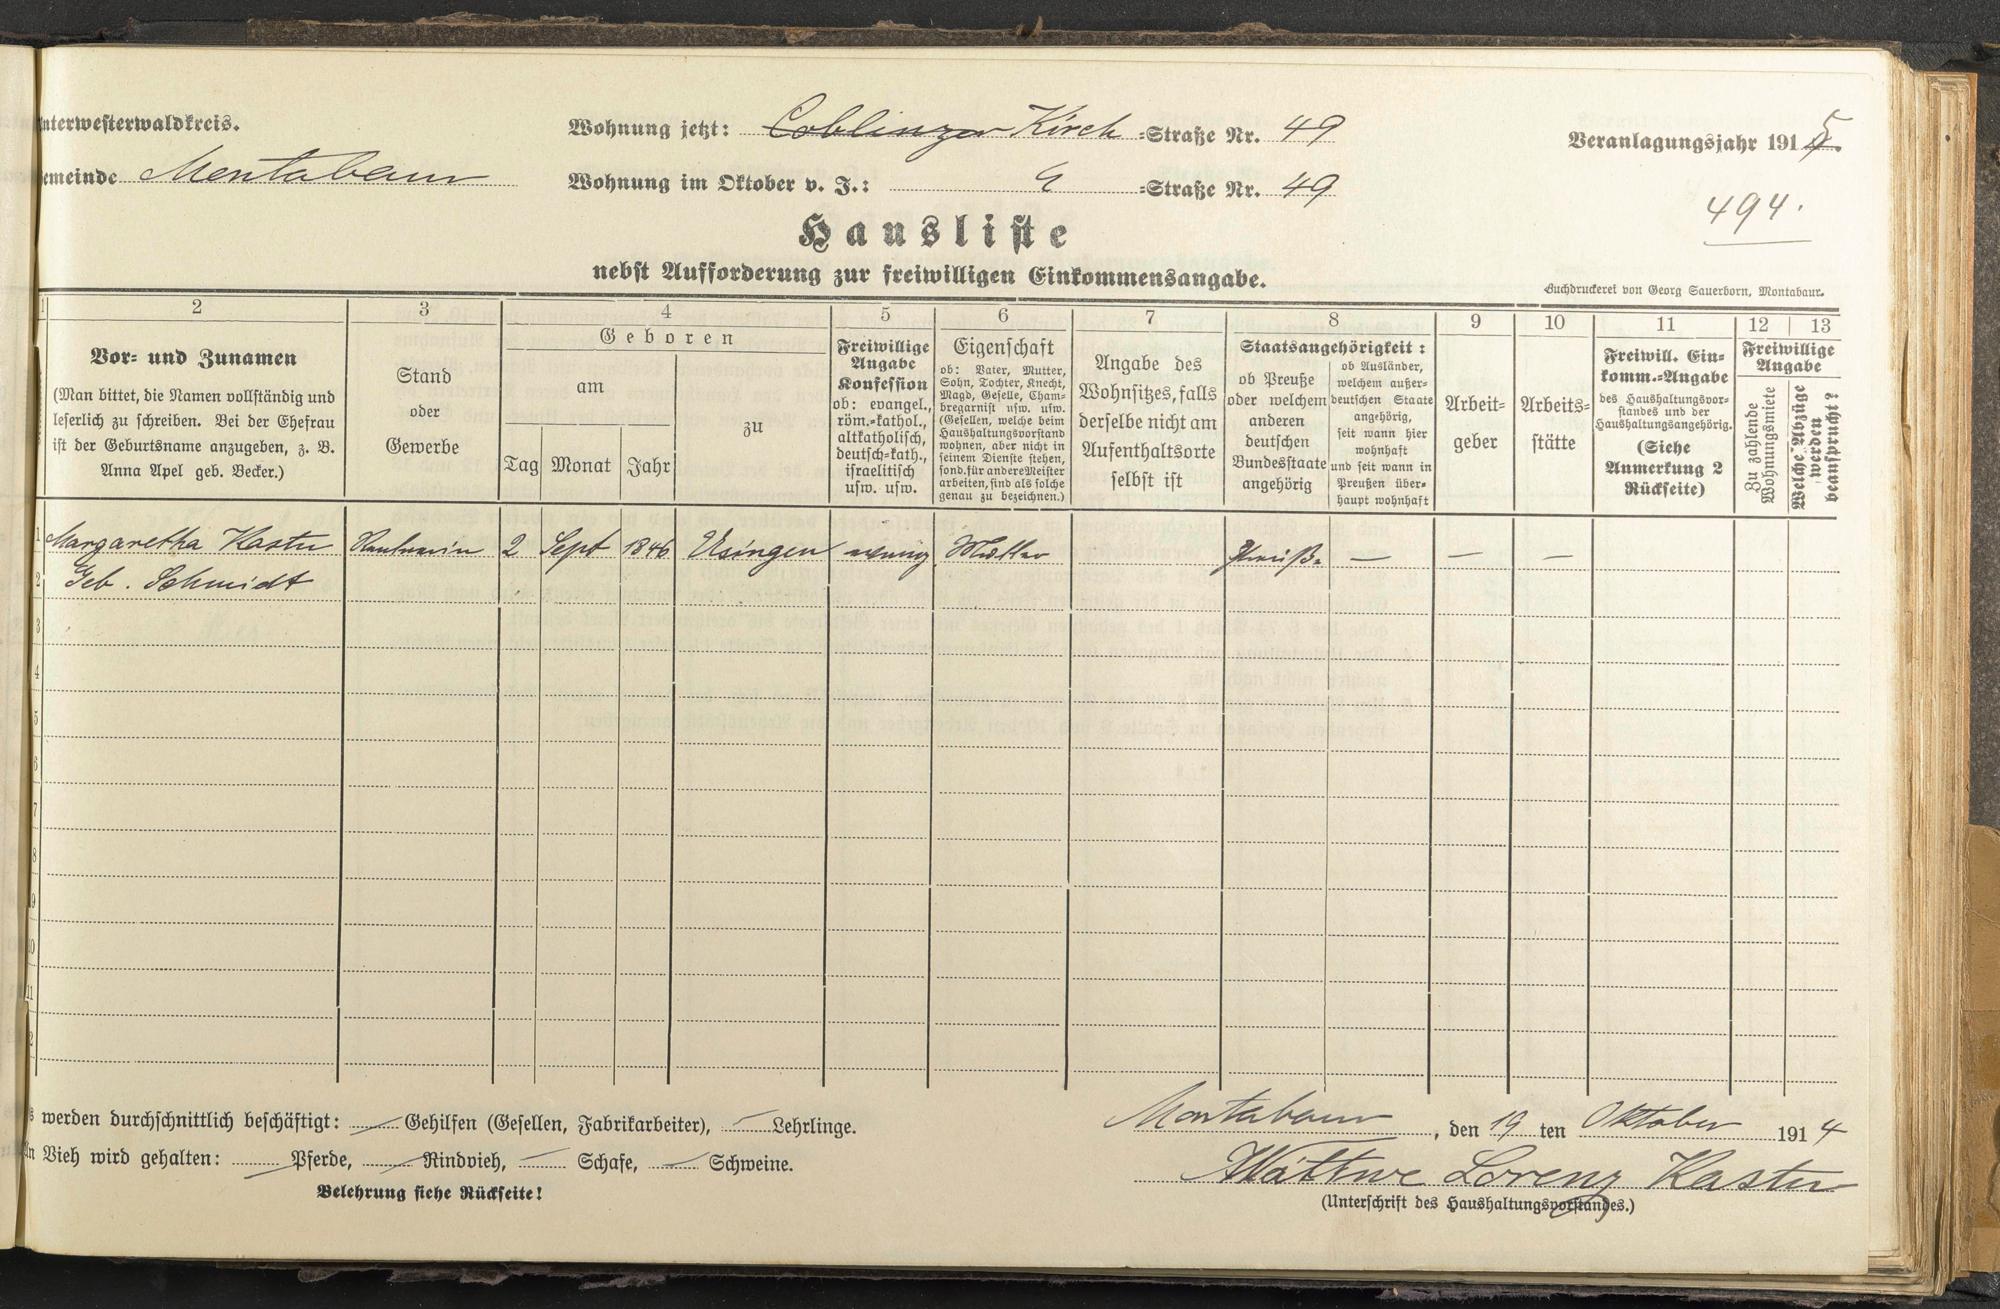 Unterwesterwaldkreis.
Gemeinde Montabaur
Wohnung jetzt: Coblenzer Kirch =Straße Nr. 49
Wohnung im Oktober v. J.: =Straße Nr. 49
Veranlagungsjahr 1915.
494.
Hausliste
nebst Aufforderung zur freiwilligen Einkommensangabe.
Buchdruckerei von Georg Sauerborn, Montabaur.
1 2 3 4 5 6 7 8 9 10 11 12 13
Vor- und Zunamen
(Man bittet, die Namen vollständig und
leserlich zu schreiben. Bei der Ehefrau
ist der Geburtsname anzugeben, z. B.
Anna Apel geb. Becker.)
Stand
oder
Gewerbe
Geboren
am
Tag Monat Jahr
zu
Freiwillige
Angabe
Konfession
ob: evangel.,
röm.-kathol.,
altkatholisch,
deutsch-kath.,
israelitisch
usw. usw.
Eigenschaft
ob: Vater, Mutter,
Sohn, Tochter, Knecht,
Magd, Geselle, Cham-
bregarnist usw. usw.
(Gesellen, welche beim
Haushaltungsvorstand
wohnen, aber nicht in
seinem Dienste stehen,
sond. für andere Meister
arbeiten, sind als solche
genau zu bezeichnen.)
Angabe des
Wohnsitzes, falls
derselbe nicht am
Aufenthaltsorte
selbst ist
Staatsangehörigkeit:
ob Preuße
oder welchem
anderen
deutschen
Bundesstaate
angehörig
ob Ausländer,
welchem außer-
deutschen Staate
angehörig,
seit wann hier
wohnhaft
und seit wann in
Preußen über-
haupt wohnhaft
Arbeit-
geber
Arbeits-
stätte
Freiwill. Ein-
komm.-Angabe
des Haushaltungsvor-
standes und der
Haushaltungsangehörig.
(Siehe
Anmerkung 2
Rückseite)
Freiwillige
Angabe
Zu zahlende
Wohnungsmiete
Welche Abzüge
werden
beansprucht?
1 Margaretha Kaster 2 Sept 1846 Usingen Mutter Preuß. — — —
2 Geb. Schmidt
3
4
5
6
7
8
9
10
11
12
Es werden durchschnittlich beschäftigt: — Gehilfen (Gesellen, Fabrikarbeiter), — Lehrlinge.
An Vieh wird gehalten: — Pferde, — Rindvieh, — Schafe, — Schweine.
Belehrung siehe Rückseite!
Montabaur, den 19 ten Oktober 1914
Wittwe Lorenz Kaster
(Unterschrift des Haushaltungsvorstandes.)